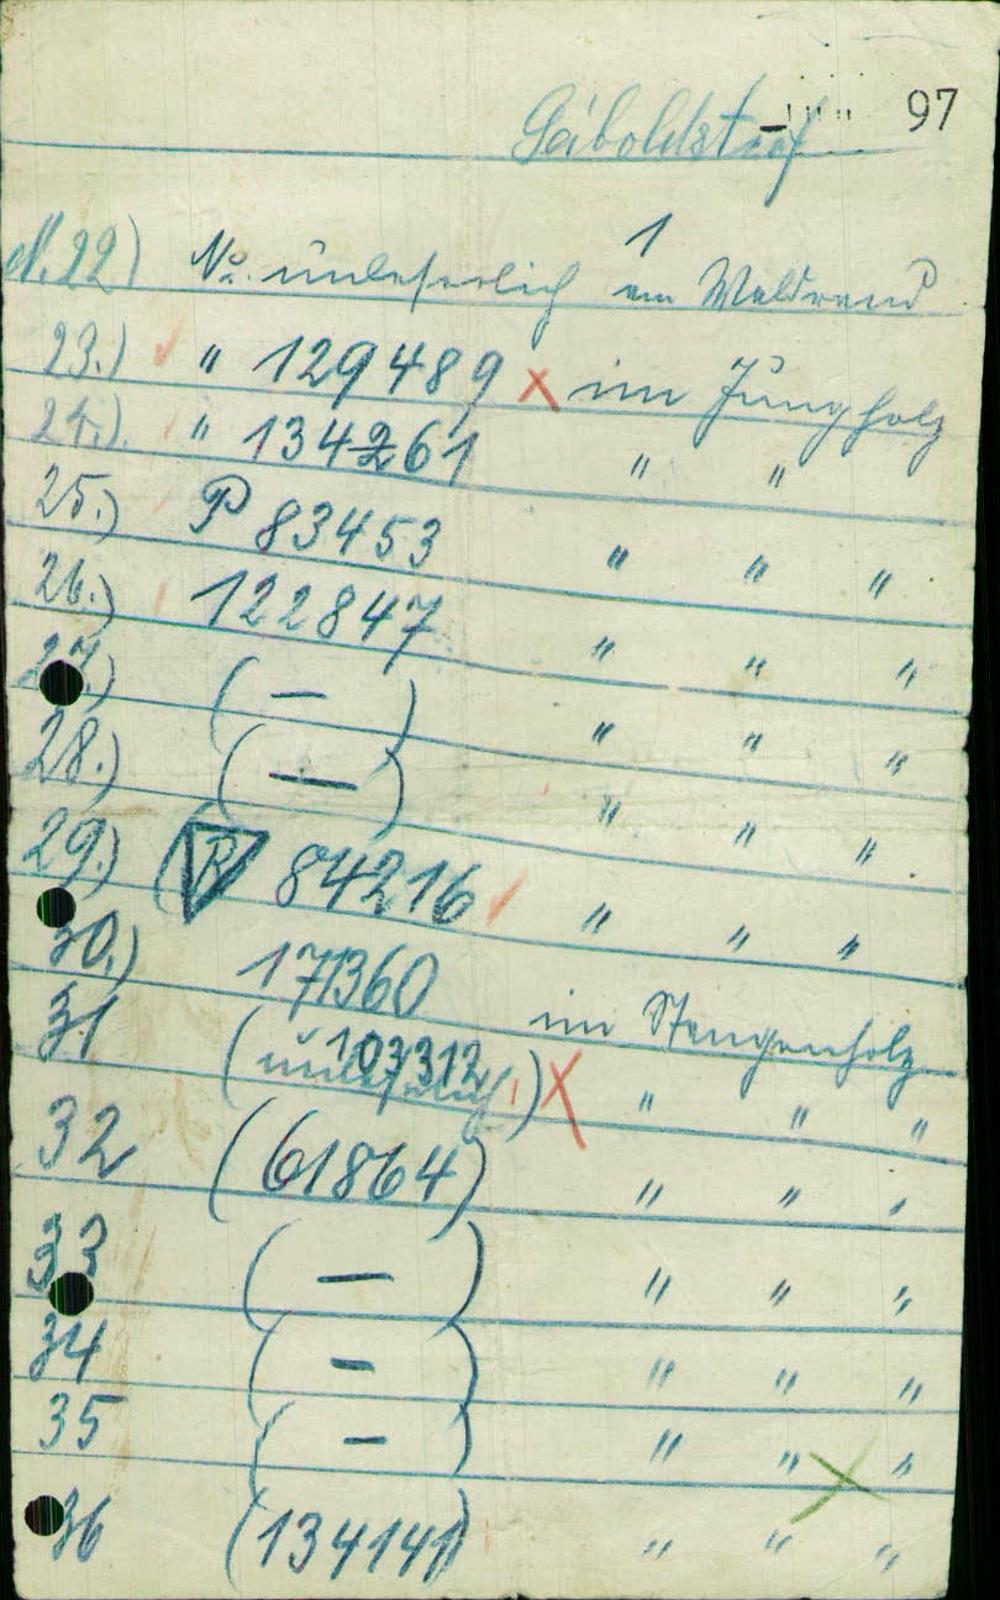 97
Geiboldstorf
1
N. 22) No. unleserlich am Waldrand
23.) " 129489 x im Jungholz
24.) " 134261 " "
25.) P 83453 " " "
26.) 122847 " " "
27.) ( — ) " " "
28.) ( — ) " " "
29.) ( R 84216 " " "
30.) 171360 im Stangenholz
31 (unleserlich) 103312 x " " "
32 (61864) " " "
33 ( — ) " " "
34 ( — ) " " "
35 ( — ) " " "
36 (134141) " " "